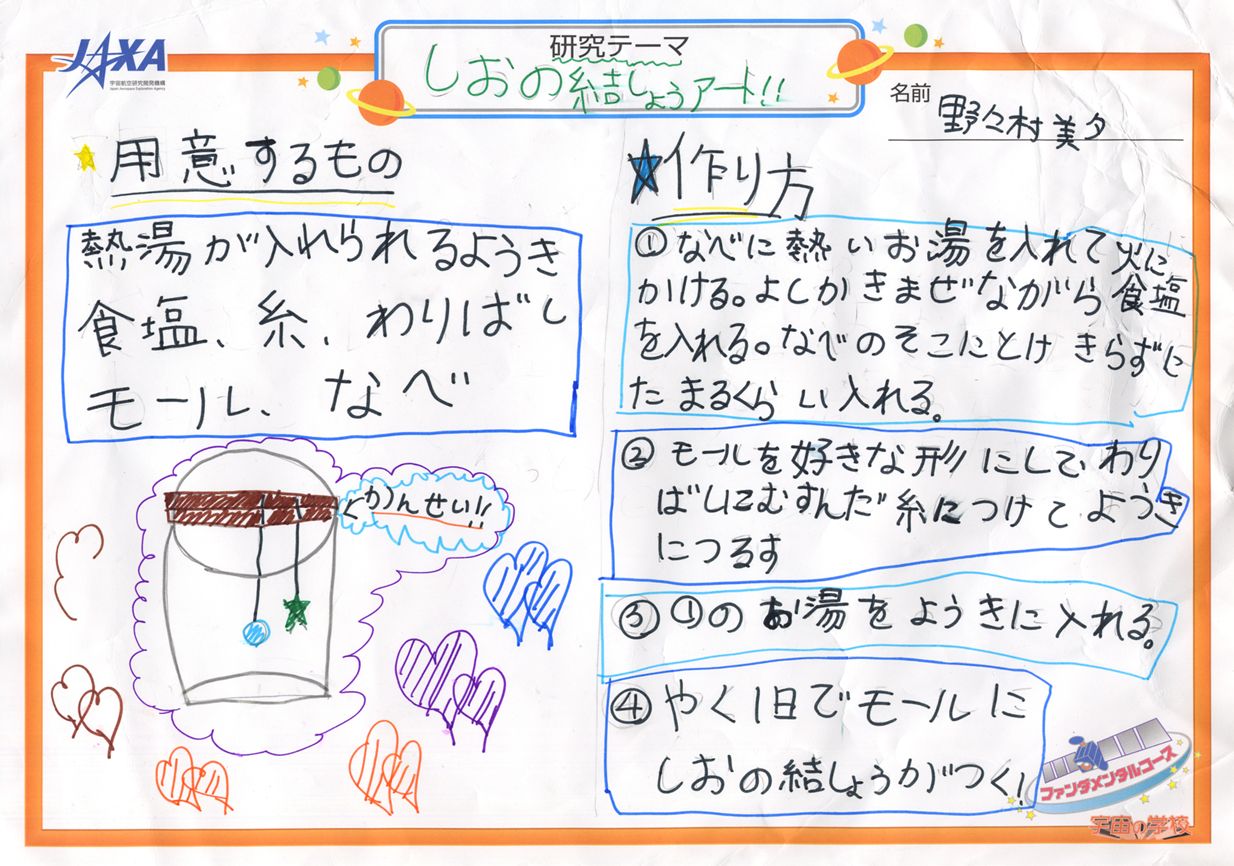 JAXA
宇宙航空研究開発機構
Japan Aerospace Exploration Agency
研究テーマ
しおの結しょうアート!!
名前
野々村美夕
用意するもの
熱湯が入れられるようき
食塩、糸、わりばし
モール、なべ
かんせい!!
作り方
①なべに熱いお湯を入れて火に
かける。よしかきまぜながら食塩
を入れる。なべのそこにとけきらずに
たまるくらい入れる。
②モールを好きな形にしてわり
ばしにむすんだ糸につけてようき
につるす
③①のお湯をようきに入れる。
④やく1日でモールに
しおの結しょうがつく!
ファンダメンタルコース
宇宙の学校